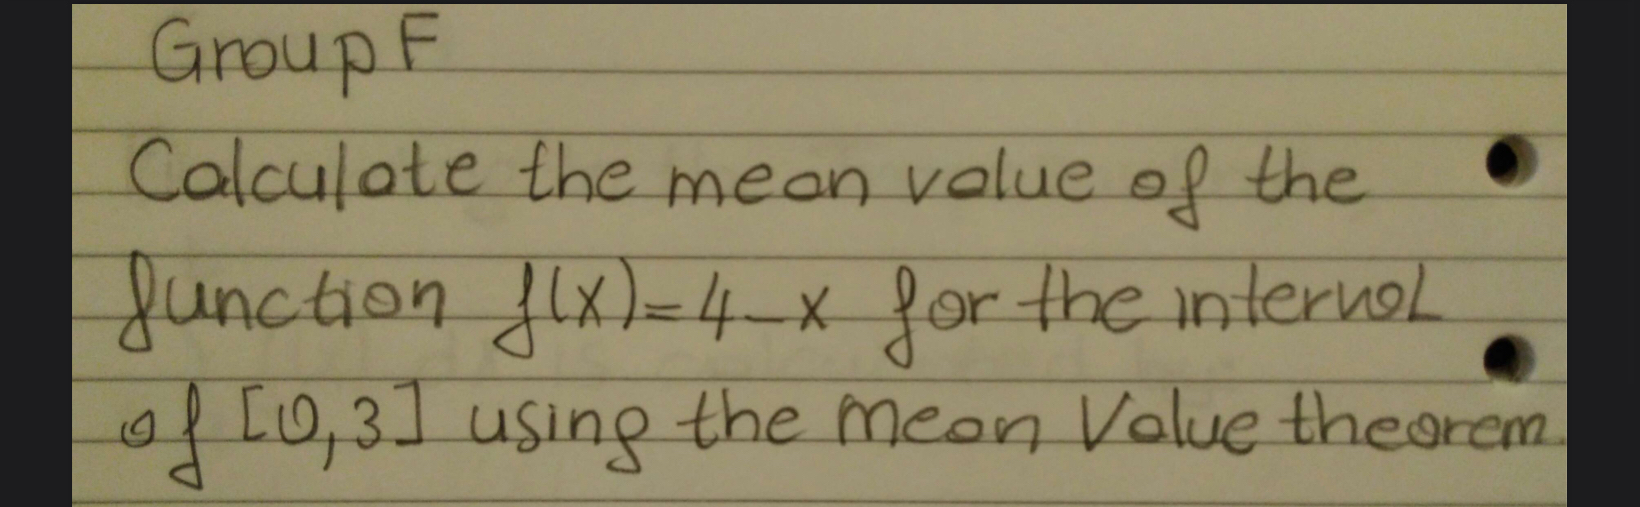 Group F
Calculate the mean value of the
function f(x)=4-x for the interval
of [0,3] using the mean Value theorem.